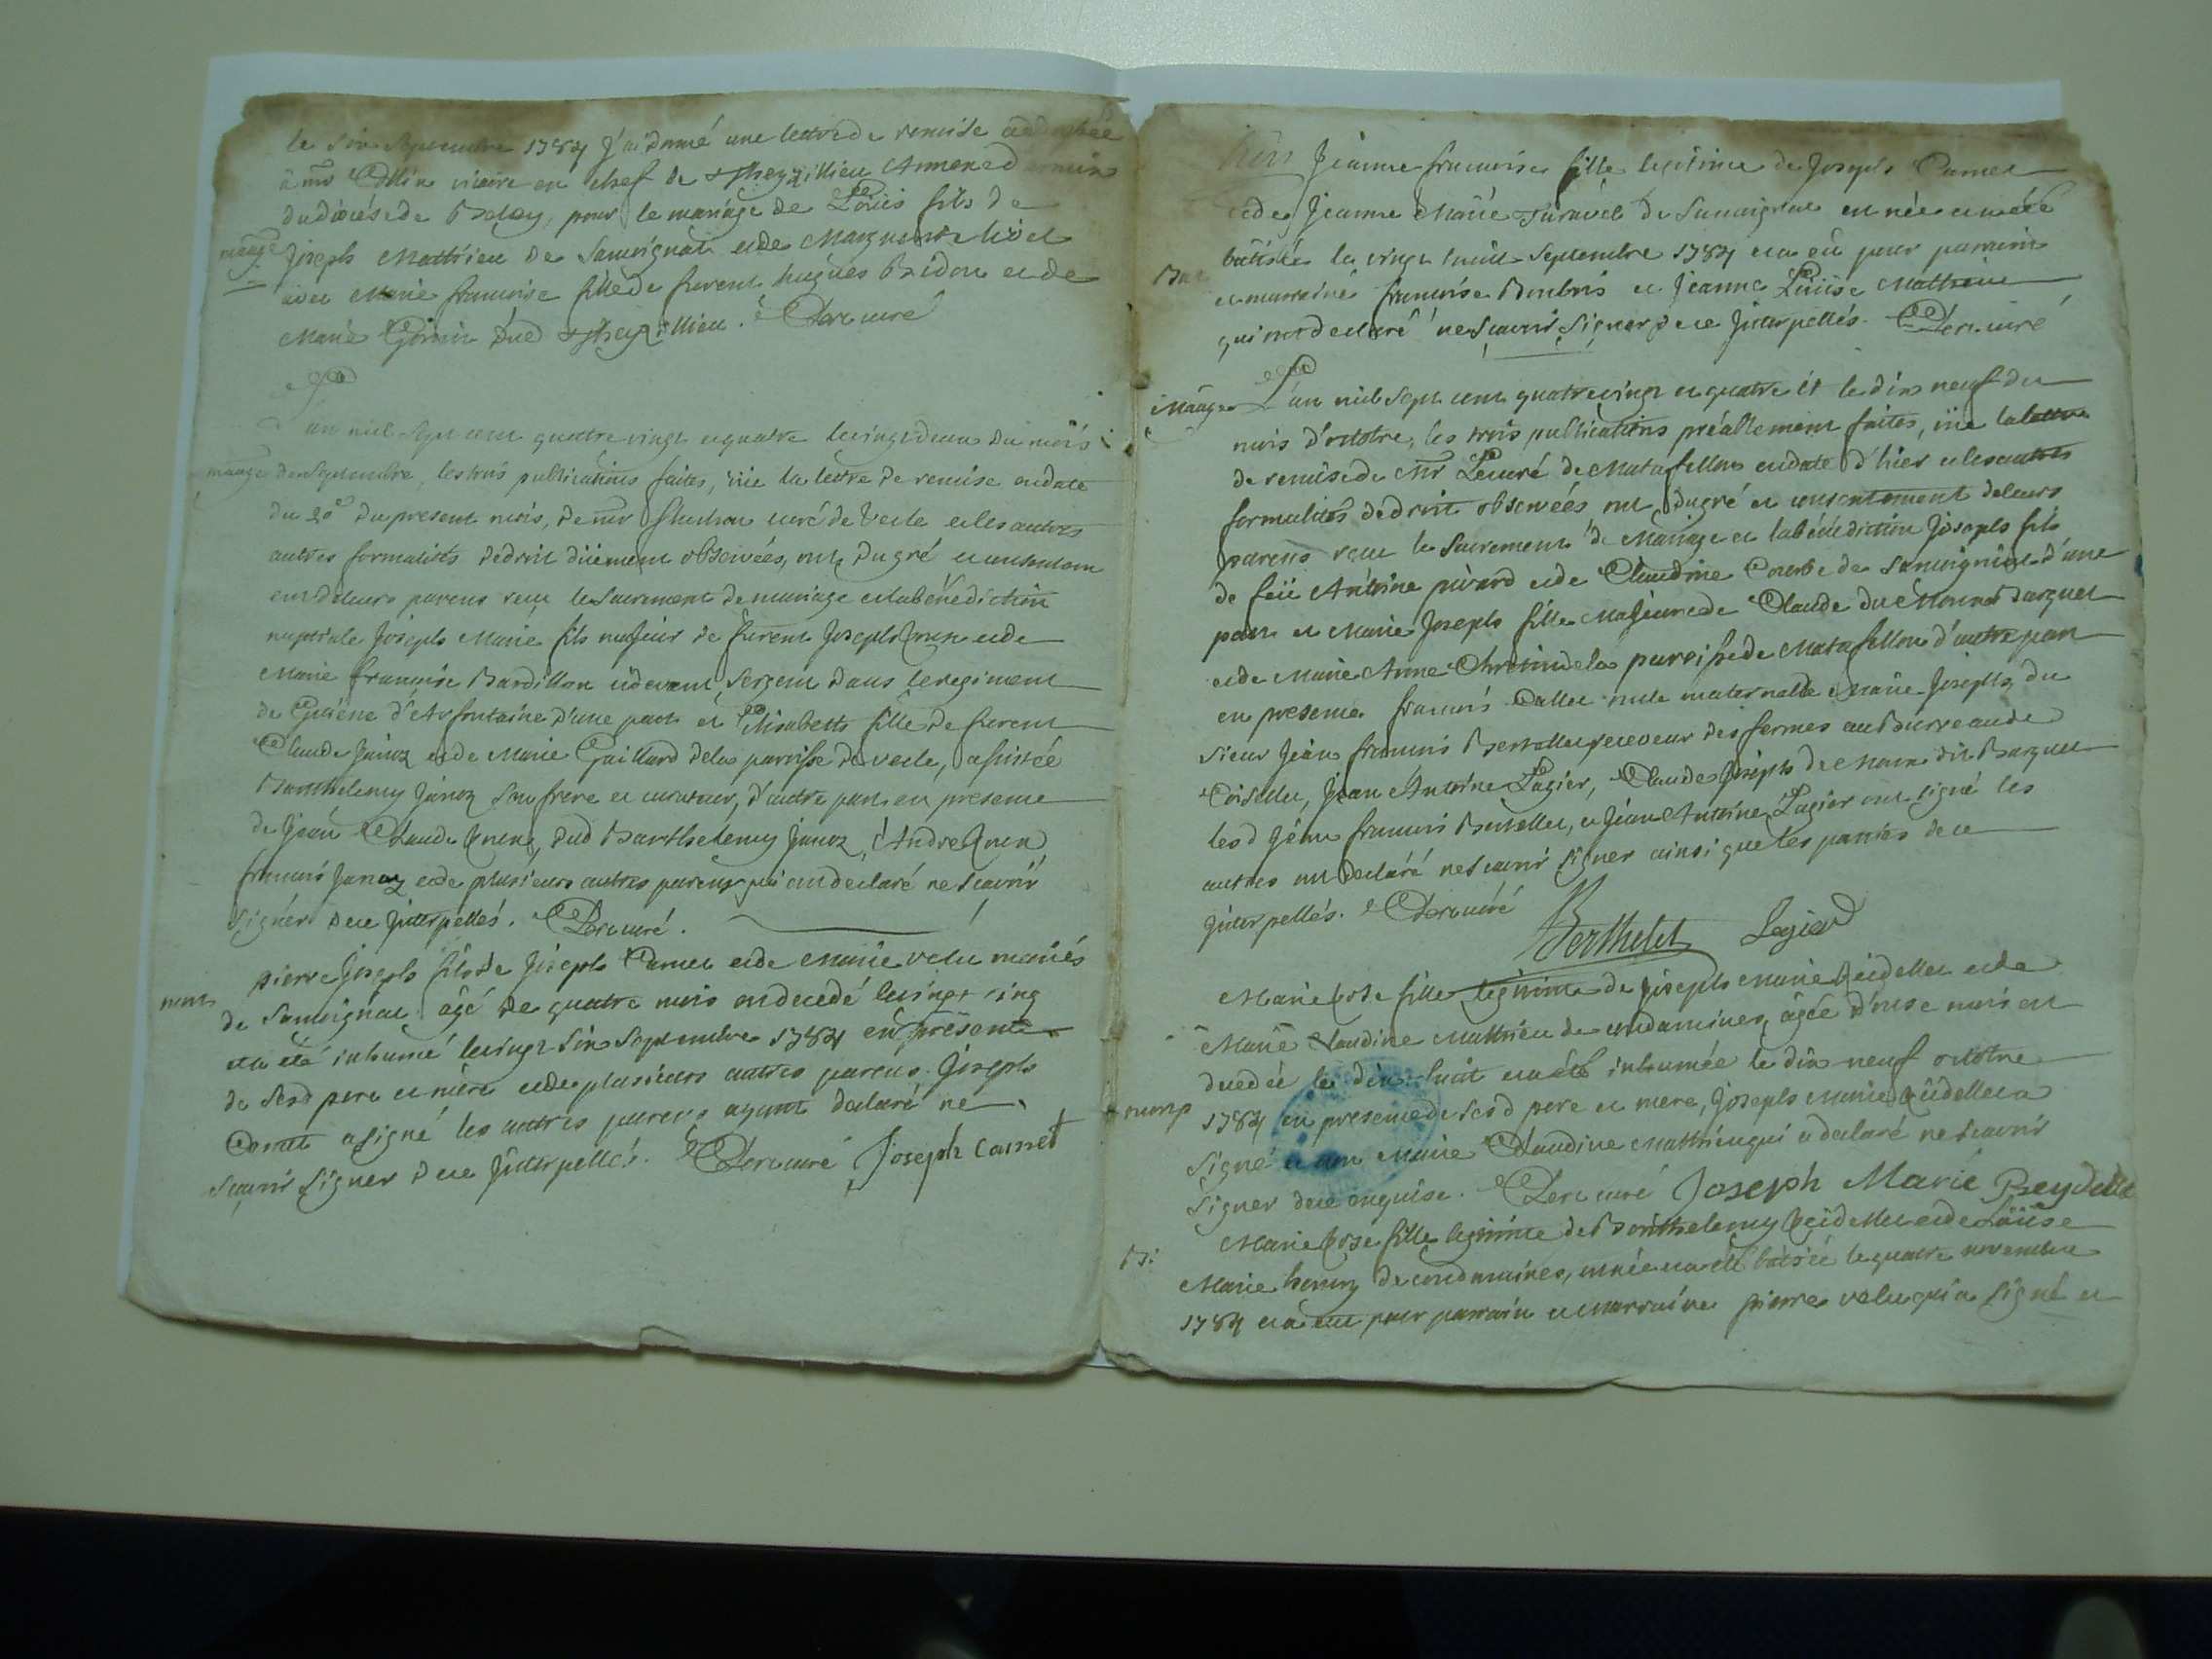 le six Septembre 1784 j'ai donné une lettre de remise
à mr Collin vicaire en chef de Annexe
du diocése de Beley, pour le mariage de Loüis fils de
mãge Joseph Matthieu de Samoignat et de Margueritte
avec Marie francoise fille de furent hugues Bridon et de
Marie dud . Der curé
L'an mil Sept cent quattre vingt et quatre le vingt deux du mois
mãage de Septembre, les trois publications faites, vüe la lettre de remise en date
du 20e du present mois, de mr curé de Veсle et les autres
autres formalités de droit düement observées, ont du gré et consentem
ent de leurs parens reçu le Sacrement de mariage et la bénédiction
nuptiale Joseph Marie fils majeur de furent Joseph et de
Marie francoise Bardillon cidevant Sergent dans le regiment
de Guiéne d'Arfontaine d'une part et Elisabeth fille de furent
Claude Janoz et de Marie Gaillard de la paroisse de vecle, assistée
Barthelemy Janoz son frere et curateur, d'autre part en presence
de Jean Claude , dud Barthelemy Janoz, André
francois Janoz et de plusieurs autres parens qui ont declaré ne scavoir
signer de ce Jnterpellés. Der curé.
pierre Joseph fils de Joseph Carnet et de Marie velu mariés
mort de Samoignat âgé de quatre mois est decedé le vingt cinq
et a été inhumé le vingt six Septembre 1784 en presence
de sesd pere et mère et de plusieurs autres parens. Joseph
Carnet a signé les autres parens ayant declaré ne
scavoir signer de ce Jnterpellés. Der curé Joseph Carnet
Jeanne francoise fille legitime de Joseph Carnet
et de Jeanne Marie de Samoignat est née et a été
Bat batisée le vingt huit Septembre 1784 et a eû pour parrain
et marraine francoise et Jeanne Loüise Matthieu
qui ont declaré ne scavoir signer de ce Jnterpellés. Der curé
Mãage L'an mil sept cent quatre vingt et quatre et le dix neuf du
mois d'octobre, les trois publications préallement faites, vüe la lettre
de remise de Mr Le curé de Matafellon en date d'hier et les autres
formalités de droit observées ont du gré et consentement de leurs
parens reçu le Sacrement de Mariage et la bénédiction Joseph fils
de feü Antoine et de Claudine de Samoignat d'une
part et Marie Joseph fille Majeure de Claude
et de Marie Anne de la paroisse de Matafellon d'autre part
en presence francois maternelle Marie Joseph, du
sieur Jean francois Berthellet receveur des fermes au Bureau de
Coisellet, Jean Antoine Lagier, Claude Joseph
lesd Jean francois Berthellet, et Jean Antoine Lagier ont signé les
autres ont declaré ne scavoir signer ainsi que les parties de ce
Jnterpellés. Der curé Berthelet Legier
Marie Rose fille legitime de Joseph Marie Reidellet et de
Marie Claudine Matthieu de condamines, âgée d'onze mois est
decedée le dix huit et a été inhumée le dix neuf octobre
mort 1784 en presence de sesd pere et mere, Joseph Marie Reidellet a
signé et non Marie Claudine Matthieu qui a declaré ne scavoir
signer de ce enquise. Der curé Joseph Marie Reydellet
Marie Rose fille legitime de Barthelemy Reidellet et de Loüise
B: Marie de condamines, est née et a été batisée le quatre novembre
1784 et a eut pour parrain et marraine pierre velu qui a signé et